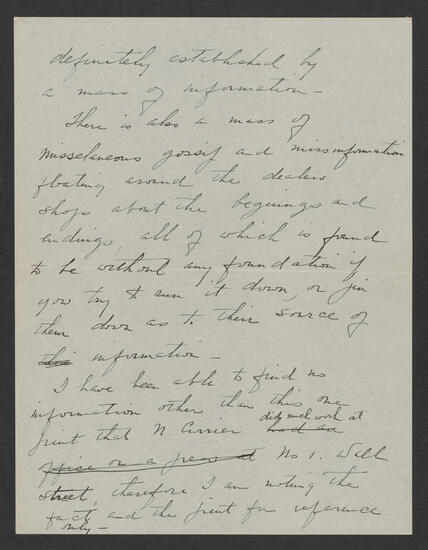 definitely established by
a mass of information –
There is also a mass of
misselaneous gossip and missinformation
floating around the dealers
shops about the beginings and
endings, all of which is found
to be without any foundation if
you try to run it down, or pin
them down as to their source of
this information –
I have been able to find no
information other than this one
print that N. Currier had an did much work at
office or a press at No 1. Wall
street, therefore I am noting the
fact, and the print for reference
only –